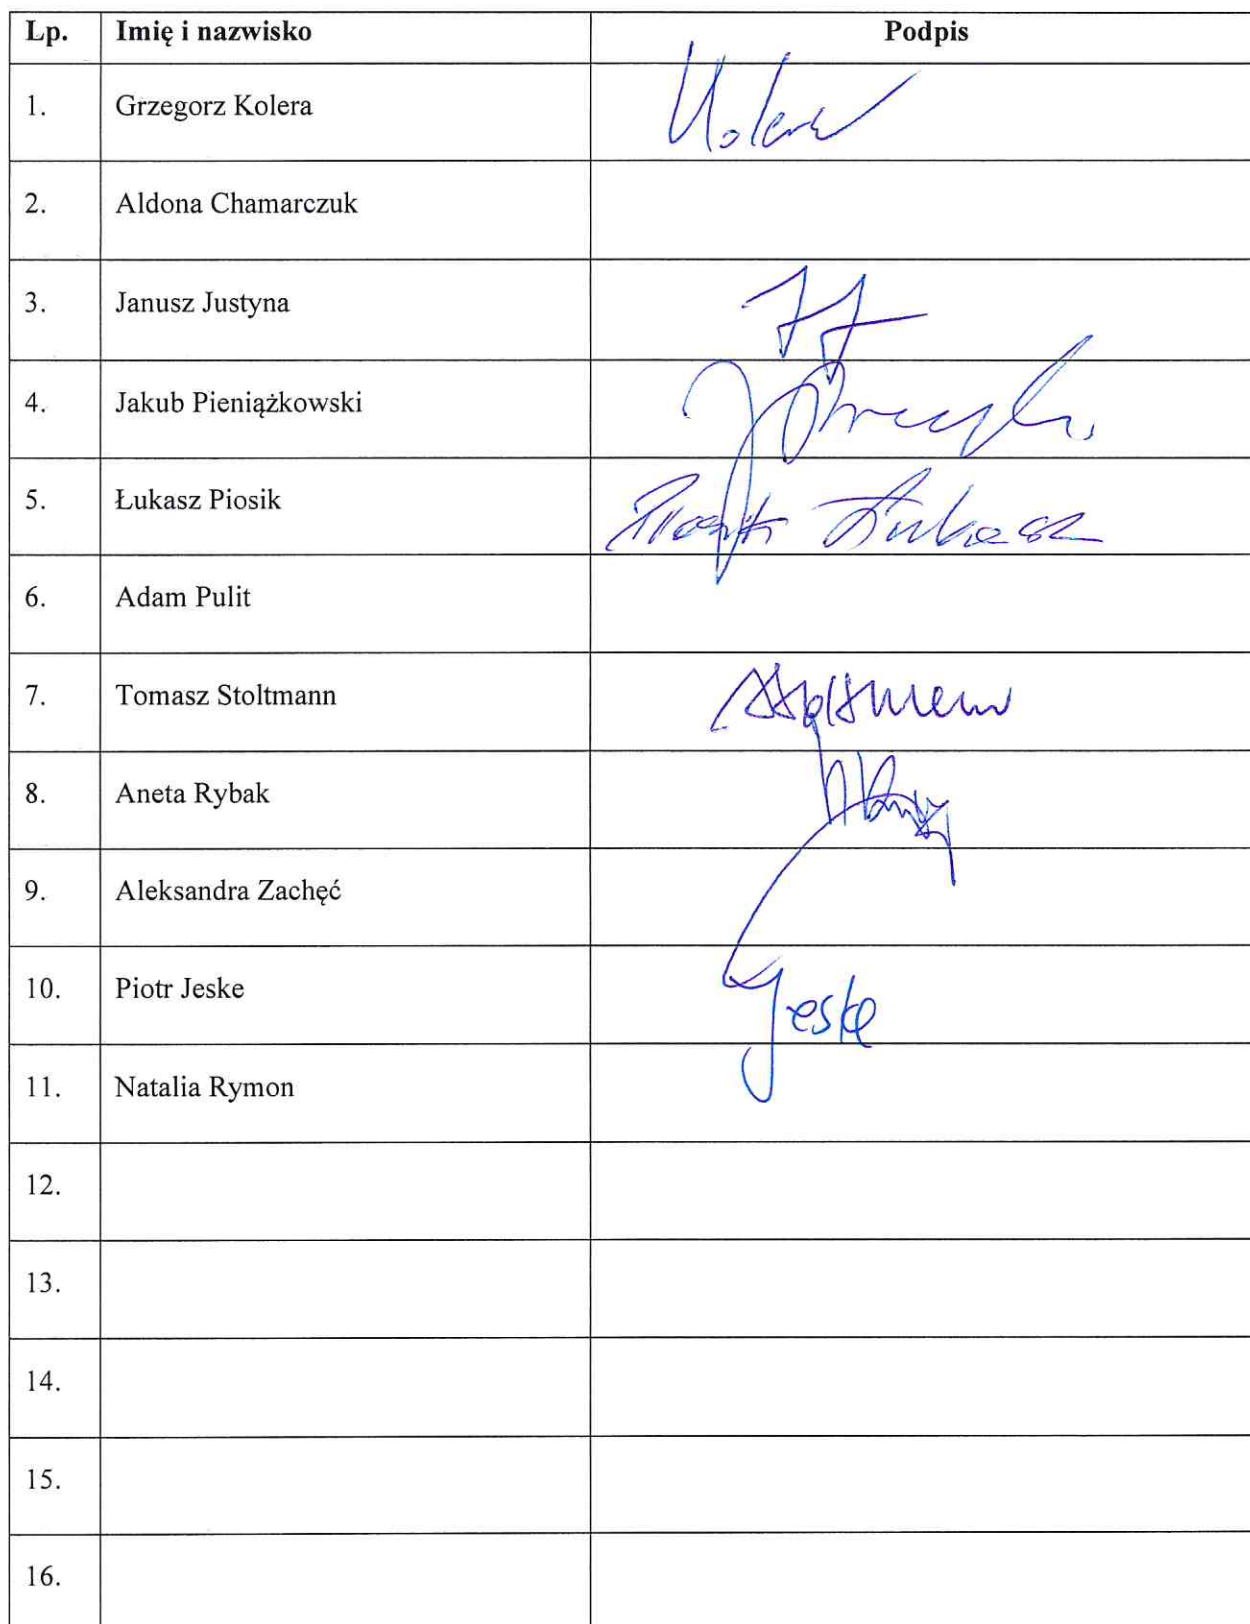 Lp. Imię i nazwisko Podpis
1. Grzegorz Kolera
2. Aldona Chamarczuk
3. Janusz Justyna
4. Jakub Pieniążkowski
5. Łukasz Piosik Piosik Łukasz
6. Adam Pulit
7. Tomasz Stoltmann
8. Aneta Rybak
9. Aleksandra Zachęć
10. Piotr Jeske Jeske
11. Natalia Rymon
12.
13.
14.
15.
16.